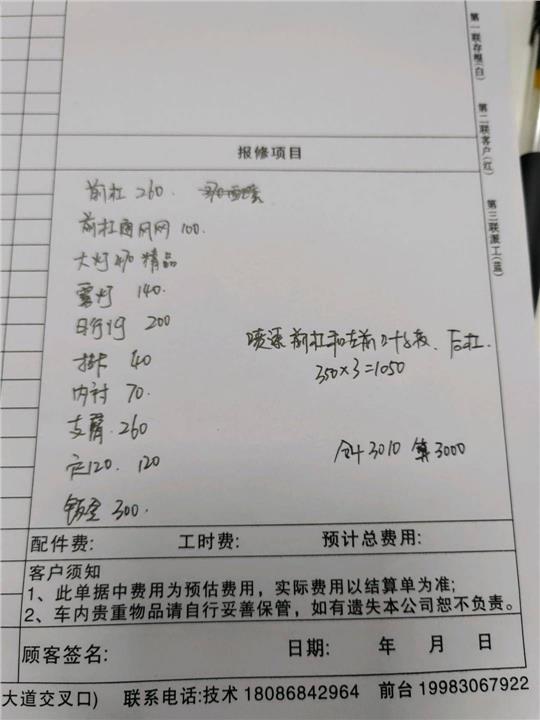 第一联存根(白)
第二联客户(红)
第三联派工(蓝)
报修项目
前杠 260.
前杠通风网 100.
大灯 470 精品
雾灯 140.
日行灯 200
排卡 40
内衬 70.
支臂 260
120. 120
钣金 300.
喷漆 前杠和左前叶子板、后杠.
350×3=1050
合计 3010 算 3000
配件费: 工时费: 预计总费用:
客户须知
1、此单据中费用为预估费用,实际费用以结算单为准;
2、车内贵重物品请自行妥善保管,如有遗失本公司恕不负责。
顾客签名: 日期: 年 月 日
大道交叉口) 联系电话:技术 18086842964 前台 19983067922